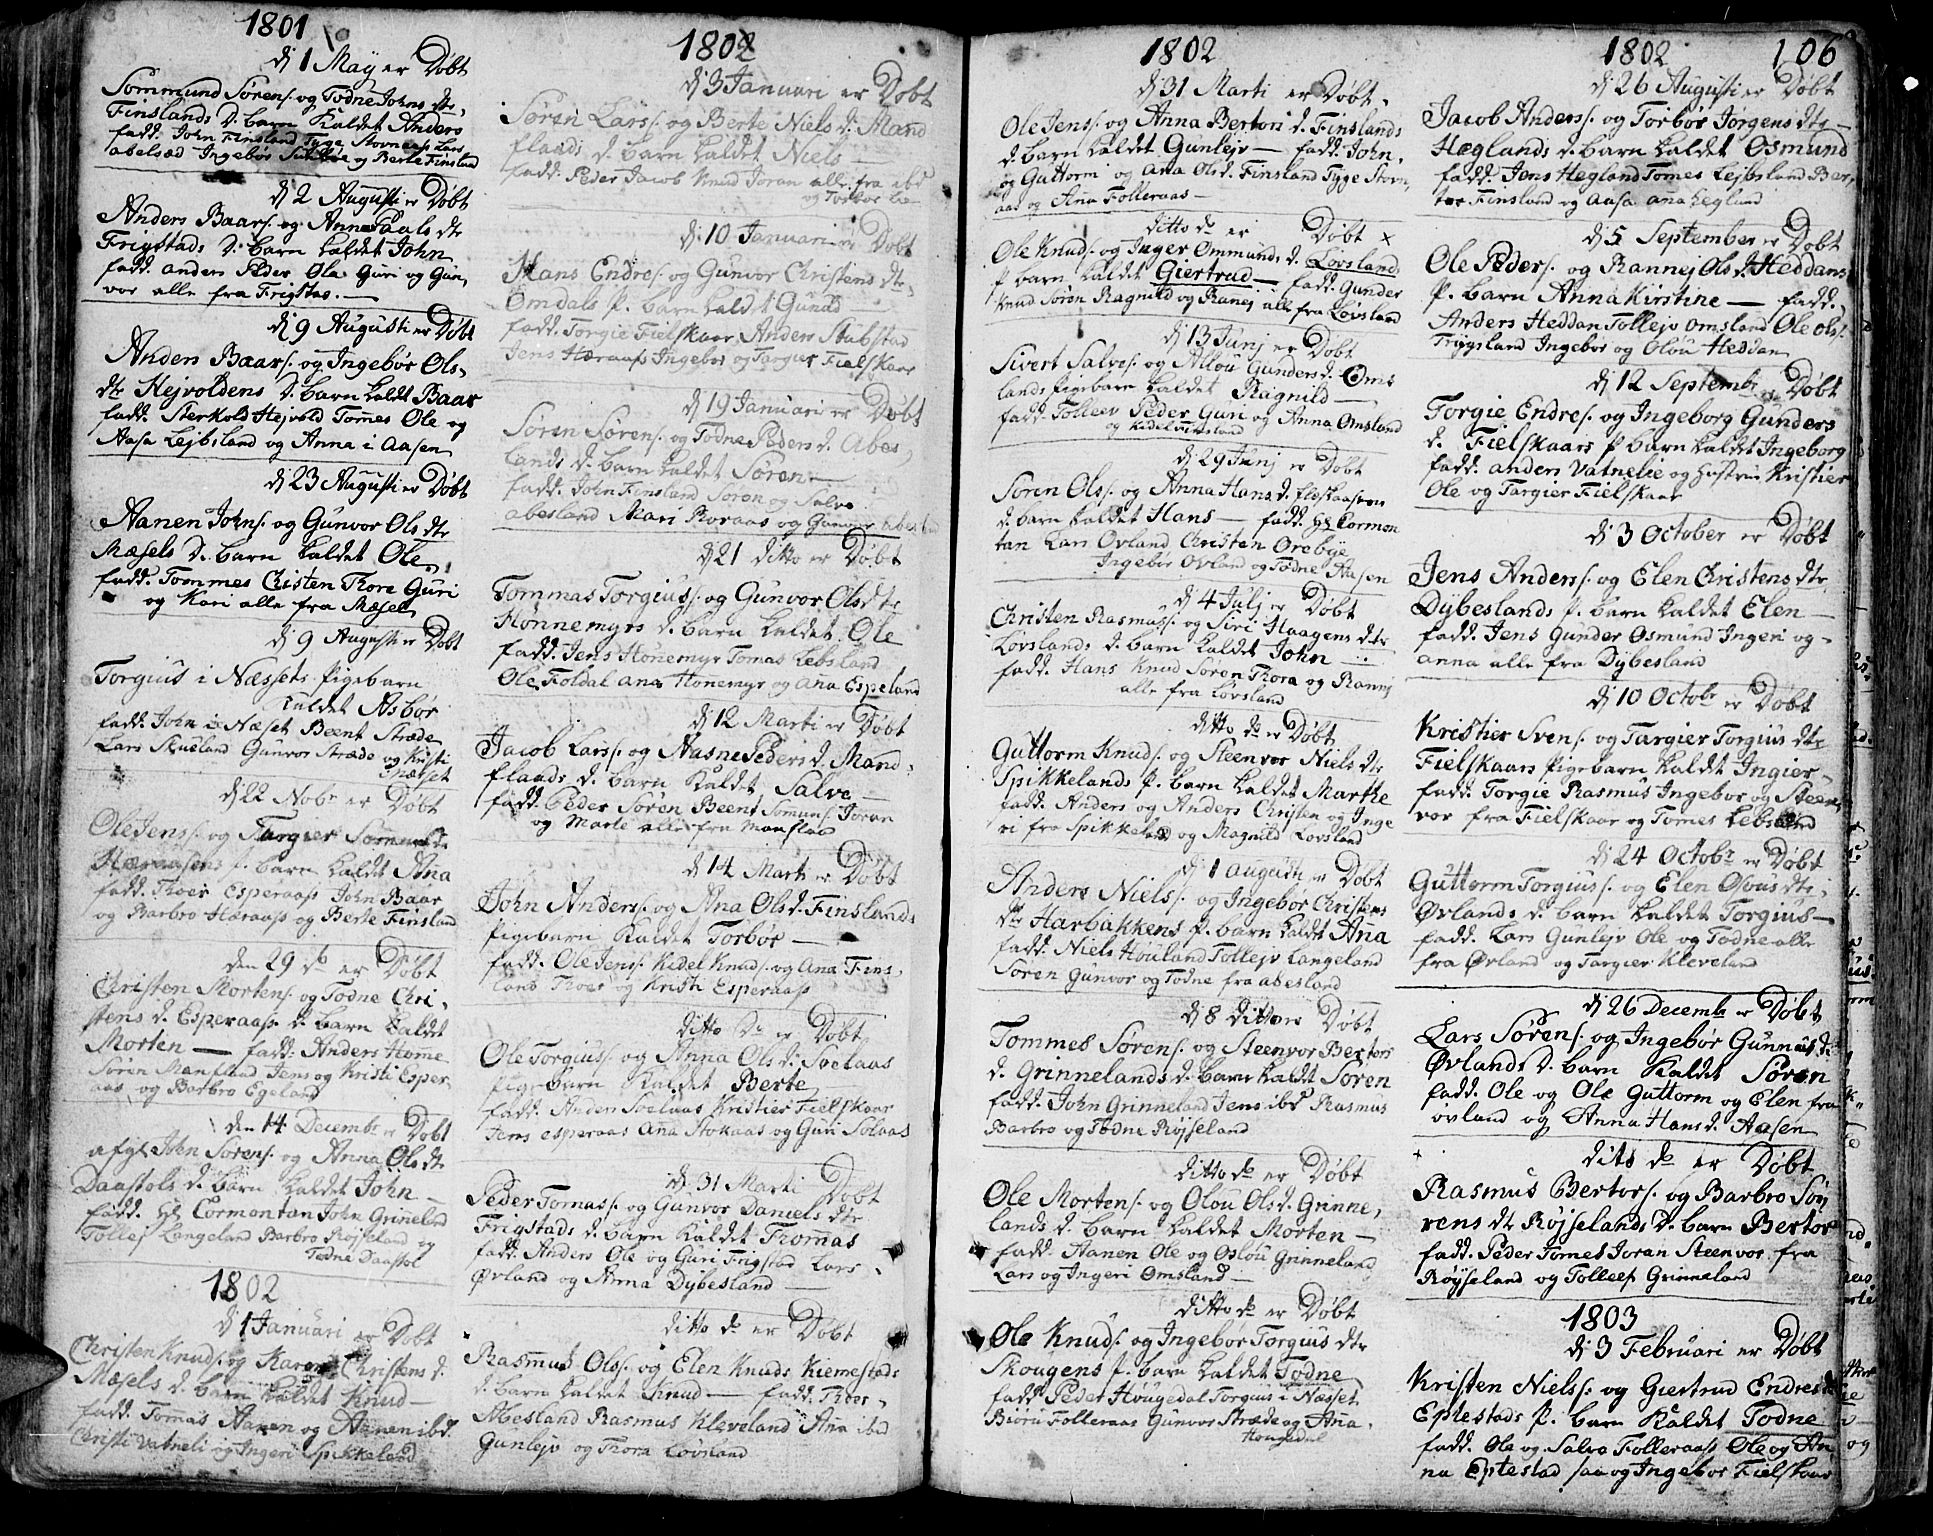 1801
dj 1 May er Døbt
Sommund Sørens. og Todne Johns dtr
Finslands d. barn kaldet Anders
fadd. John Finsland Tyge Stovnaas Lars
abelsæd Ingebor og Berte Finsland
dj 2 Augusti er Døbt
Anders Baars. og Anna Paals dtr
Frigstads d. barn kaldet John
fadd. anders Peder Ole Guri og Gun,
vor alle fra Frigstad.
dj 9 Augusti er Døbt
Anders Baars. og Ingebør Ols,
dtr Hejvoldens d. barn kaldt Baar
fadd. Sterkold Hejvold Tomes Ole og
Aasa Lejbsland og Anna i Aasen
dj 23 Augusti er Døbt
Aanen Johns. og Gunvor Ols dtr
Mæsels d. barn kaldet Ole
fadd. Tommes Christen Thore Guri
og Kari alle fra Mæsel
dj 9 Augusti er Døbt
Torgius i Næssets pigebarn
kaldet Asbor
fadd. John i Næset Beent Stræde
Lars Skueland Gunvor Stræde og Kristi
Næset
dj 22 Nobr er Døbt
Ole Jens. og Targier Sommund dtr
Hæraasens p. barn kaldet Ana
fadd. Thoer Esperaas John Baar
og Barbro Hæraas og Berte Finsland
den 29 do er Døbt
Christen Mortens. og Todne Chri,
stens d. Esperaas d. barn kaldet
Morten — fadd. Anders Home
Søren Manfland Jens og Kristi Esper,
aas og Barbro Egeland
den 14 Decembr er Døbt
afgl. John Sørens. og Anna Ols dtr
Daastols d. barn kaldet John
fadd. Hr Cormontan John Grineland
Tollef Langeland Barbro Røjseland og
Todne Daastol
1802
dj 1 Januari er Døbt
Christen Knuds. og Karen Christens d.
Mæsels d. barn kaldet Knud
fadd. Tomas Aanen og Aanen ibd.
Christi Vatneli og Ingeri Spikkeland
1802
dj 3 Januari er Døbt
Søren Lars. og Berte Niels d. Mand
flaads d. barn kaldet Niels —
fadd. Peder Jacob Knud Joran alle fra ibd
og Torbor Lie
dj. 10 Januari er Døbt
Hans Endres. og Gunvor Christens dtr
Omdals p. barn kaldet Gunild
fadd. Torgie Fielskaar Anders Stubstad
Jens Hæraas Ingebor og Targier Fielskaar
dj 19 Januari er Døbt
Søren Sørens. og Todne Peders d. Abes,
lands d. barn kaldet Søren
fadd. John Finsland Søren og Salve
abesland Mari Roraas og Gunvor
dj 21 ditto er Døbt
Tommas Torgius. og Gunvor Ols dtr
Honnemyrs d. barn kaldet Ole
fadd. Jens Honemyr Tomas Lebsland
Ole Foldal ana Honemyr og Ana Espeland
dj 12 Marti er Døbt
Jacob Lars. og Aasne Peders d. Mand,
flaads d. barn kaldet Salve
fadd. Peder Søren Beent Somun Joran
og Marte alle fra Manflaa
dj 14 Marti er Døbt
John Anders. og Ana Ols d. Finslands
pigebarn kaldet Torbør —
fadd. Ole Jens. Kedel Knuds. og Ana Fins,
land Thoer og Kristi Esperaas
ditto do er Døbt
Ole Torgius. og Anna Ols d. Soelaas
pigebarn kaldet Berte
fadd. Anders Soelaas Kristier Fielskaar
Jens esperaas Ana Stokaas og Guri Solaas
dj 31 Marti Døbt
Peder Tomas. og Gunvor Daniels dtr
Frigstads d. barn kaldet Thomas
fadd. Anders Ole og Guri Frigstad Lars
Øvland og Anna Dybesland
ditto do er Døbt
Rasmus Ols. og Elen Knuds Kiemestads
d. barn kaldet Knud — fadd. Thoer
Abesland Rasmus Kleveland Ana ibd
Gunlejv og Thora Lovland
1802
dj 31 Marti er Døbt
Ole Jens. og Anna Bertors d. Finslands
d. barn kaldet Gunlejv — fadd. John,
og Guttorm og Ana Ols d. Finsland Tyge Stovn,
aas og Ana Folleraas
ditto do er Døbt x
Ole Knuds. og Inger Ommunds d. Lovslands
p barn kaldet Giertrud — fadd. Gunder
Knud Søren Ragnild og Ranej alle fra Lovsland
dj 13 Junj er Døbt
Sivert Salves. og Allou Gunders d. Oms
lands pigebarn kaldet Ragnild
fadd. Tolleev Peder Guri og Anna Omsland
og Kedel Finsland
dj 29 Junj er Døbt
Søren Ols. og Anna Hans d.
d. barn kaldet Hans — fadd. Hr Cormon
tan Lars Øvland Christen Orebye
Ingebør Øvland og Todne Aasen
dj 4 Julj er Døbt
Christen Rasmus. og Siri Haagens dtr
Lovslands d. barn kaldet John
fadd. Hans Knud Søren Thora og Rannj
alle fra Løvsland
ditto do er Døbt
Guttorm Knuds. og Steenvor Niels dtr
Spikkelands p. barn kaldet Marthe
fadd. Anders og Anders Christen og Inge
ri fra Spikkeland og Magnild Lovsland
dj 1 augusti er Døbt
Anders Niels. og Ingebør Christens
dtr Harbakkens p. barn kaldet Ana
fadd. Niels Houland Tollejv Langeland
Søren Gunvor og Todne fra abesland
dj 8 ditto er Døbt
Tommes Sørens. og Steenvor Bertors
d. Grinnelands d. barn kaldet Søren
fadd. John Grinneland Jens ibd Rasmus
Barbro og Todne Røjseland
ditto do er Døbt
Ole Mortens. og Olou Ols d. Grinne,
lands d. barn kaldet Morten —
fadd. Aanen Ole og Oslou Grinneland
Lars og Ingeri Omsland —
ditto do er Døbt
Ole Knuds. og Ingebør Torgius dtr
Skougens p. barn kaldet Todne
fadd. Peder Hougedal Torgius i Næsset
Biørn Folleraas Gunvor Stræde og Ana
Hougedal
1802 106
dj 26 Augusti er Døbt
Jacob Anders. og Torbør Jørgens dtr
Hæglands d. barn kaldet Osmund
fadd. Jens Hegland Tomes Lejbsland Ber,
tor Finsland og Aasa ana Leglund
dj 5 September er Døbt
Ole Peders. og Rannej Ols d. Heddans
p. barn Anna Kirstine — fadd.
Anders Heddan Tollejv Omsland Ole Ols.
Trygsland Ingebør og Olou Heddan
dj 12 Septembr er Døbt
Torgie Endres. og Ingeborg Gunders
d. Fielskaars p barn kaldet Ingeborg
fadd. anders Vatnelie og Hustru Kristier
Ole og Targier Fielskaar
dj 3 October er Døbt
Jens Anders. og Elen Christens dtr
Dybeslands p. barn kaldet Elen —
fadd. Jens Gunder Osmund Ingeri og
anna alle fra Dybesland
dj 10 Octobr er Døbt
Kristier Svens. og Targier Torgius dtr
Fielskaars pigebarn kaldet Ingier
fadd. Torgie Rasmus Ingebor og Steen,
vor fra Fielskaar og Tomes Lebsland
dj 24 Octobr er Døbt
Guttorm Torgius. og Elen Osous dtr
Øvlands d. barn kaldet Torgius —
fadd. Lars Gunlejv Ole og Todne alle
fra Øvland og Targier Kleveland
dj 26 Decembr er Døbt
Lars Sørens. og Ingebør Gunnars d.
Øvlands d. barn kaldet Søren
fadd. Ole og Ole Guttorm og Elen fra
øvland og Anna Hans d. Aasen
dito do er Døbt
Rasmus Bertors. og Barbro Søv
rens dtr Røjselands d. barn Bertor
fadd. Peder Tomes Joran Steenvor fra
Røyseland og Tolleef Grinneland
1803
dj 3 Februari er Døbt
Kristen Niels. og Giertrud Endres d
Eptestads p. barn kaldet Todne
fadd. Ole og Salve Folleraas Ole og An
na Eptestad saa og Ingebor Fielskaar